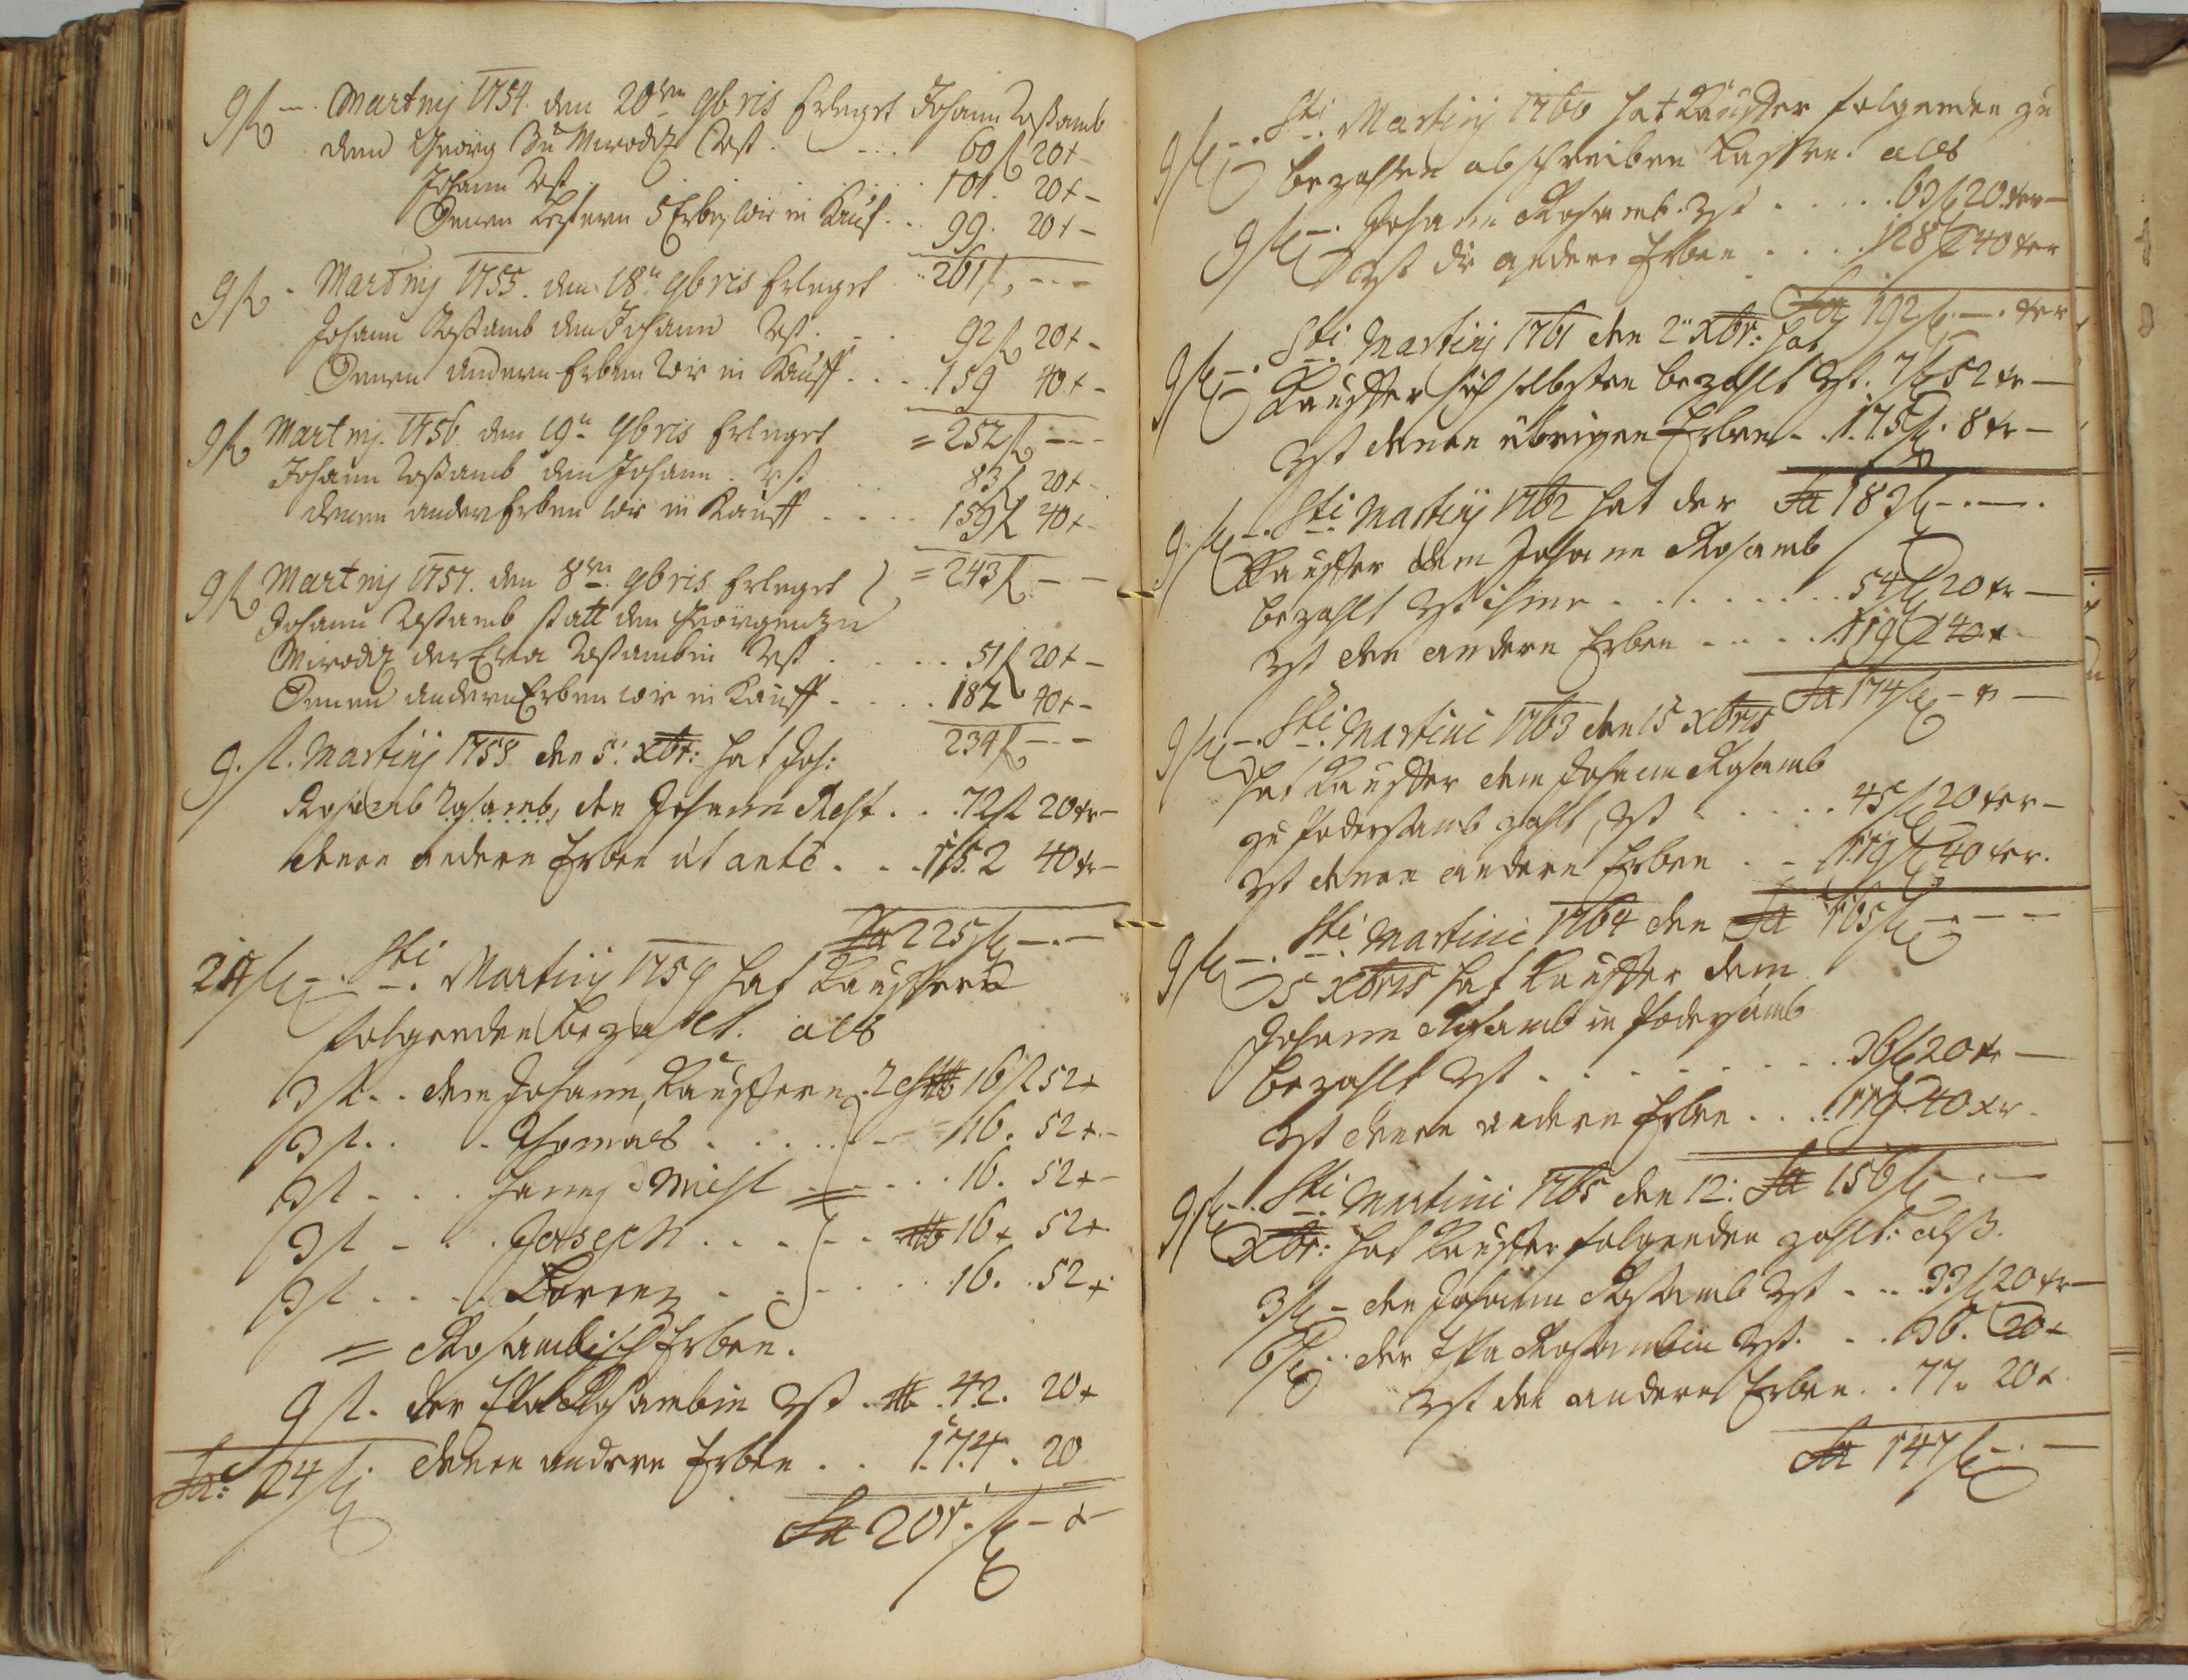 9 f – Martinj 1754. den 20ten 9bris Erleget Johann Roßamb
dem Georg Zu Mirodiz Rest . . . 60 f 20 x –
Johann Rest . . . 101. 20 x –
Denen 5 Erben wie in Kauf . . 99. 20 x –
261 f – –
9 f – Martinj 1755. den 18n 9bris Erleget
Johann Roßamb dem Johann Rest . . 92 f 20 x –
Denen andern Erben wie in Kauff . . . 159 40 x –
= 252 f – –
9 f Martinj. 1756. den 19n 9bris Erleget
Johann Roßamb dem Johann Rest . . . 83 f 20 x –
denen andern Erben wie in Kauff . . . . 159 f 40 x –
= 243 f – –
9 f Martinj 1757. den 8ten 9bris Erleget
Johann Roßamb statt dem Georgen zu
Mirodiz der Eva Roßambin Rest . . . . 51 f 20 x –
Denen andern Erben wie in Kauff . . . . 182 40 x –
234 f – –
9. f. Martinj 1758 den 5. Xbr: hat Joh:
Rosamb den Johann Rest . . . 72 f 20 kr –
denen andern Erben ut ante . . . 152 40 kr –
Sa 225 f – . –
24 f – . Sti Martinj 1759 hat Kauffer
folgenden bezahlt. als
3 f . . dem Johann, Kauffern . 16 f 52 x
3 f . . . Thomas . . . . . 16. 52 x –
3 f – . . Hannß Michl . . . . 16. 52 x –
3 f – . . Joseph . . . . 16 x 52 x
3 f . . . . Lorenz . . . . . 16. . 52 x
= Rosambisch Erben.
9 f. der Eva Rosambin Rst . 42. 20 x
Sa: 24 f. denen andern Erben . . 174. 20
Sa 201. f – x –
9 f – . Sti Martinj 1760 hat Kauffer folgenden zu
bezahlen abschreiben Lassen. als
9 f – . Johann Rosamb. Rst . . . . . 63 f 20 kr –
Rst die andern Erben . . . . 128 f 40 kr
Sa 192 f – . kr
9 f – . Sti Martinj 1761 den 2n Xbr: hat
Kauffer sich selbsten bezahlt Rst. 7 f 52 kr –
Rst denen übrigen Erben – . 175 f. 8 kr –
Sa 183 f – . – .
9 f – . Sti Martinj 1762 hat der
Kauffer dem Johann Rosamb
bezahlt Rst ihme . . . . . . . . 54 f 20 kr –
Rst den andern Erben . . . . . 119 f 40 x
Sa 174 f – x –
9 f – . Sti Martini 1763 den 15 Xbris
hat Kauffer dem Johann Rosamb
zu Podersamb zahlt, Rst . . . . . 45 f 20 kr –
Rst denen andern Erben . . 119 f 40 kr.
Sa 165 f – – –
9 f – . Sti Martini 1764 den
5 Xbris hat Kauffer dem
Johann Rosamb in Podersamb
bezahlt Rst . . . . . . . . . 36 f 20 kr –
Rst denen andern Erben . . . 119 40 xr.
Sa 156 f – . –
9 f – . Sti Martini 1765 den 12.
Xbr: hat Kauffer folgenden zahlt: alß.
3 f – den Johann Rosamb Rst . . . 33 f 20 kr –
6 f . . der Eva Rosambin Rst. . . . 36. 20 x
Rst den andern Erben . . 77. 20 x
Sa 147 f – . –